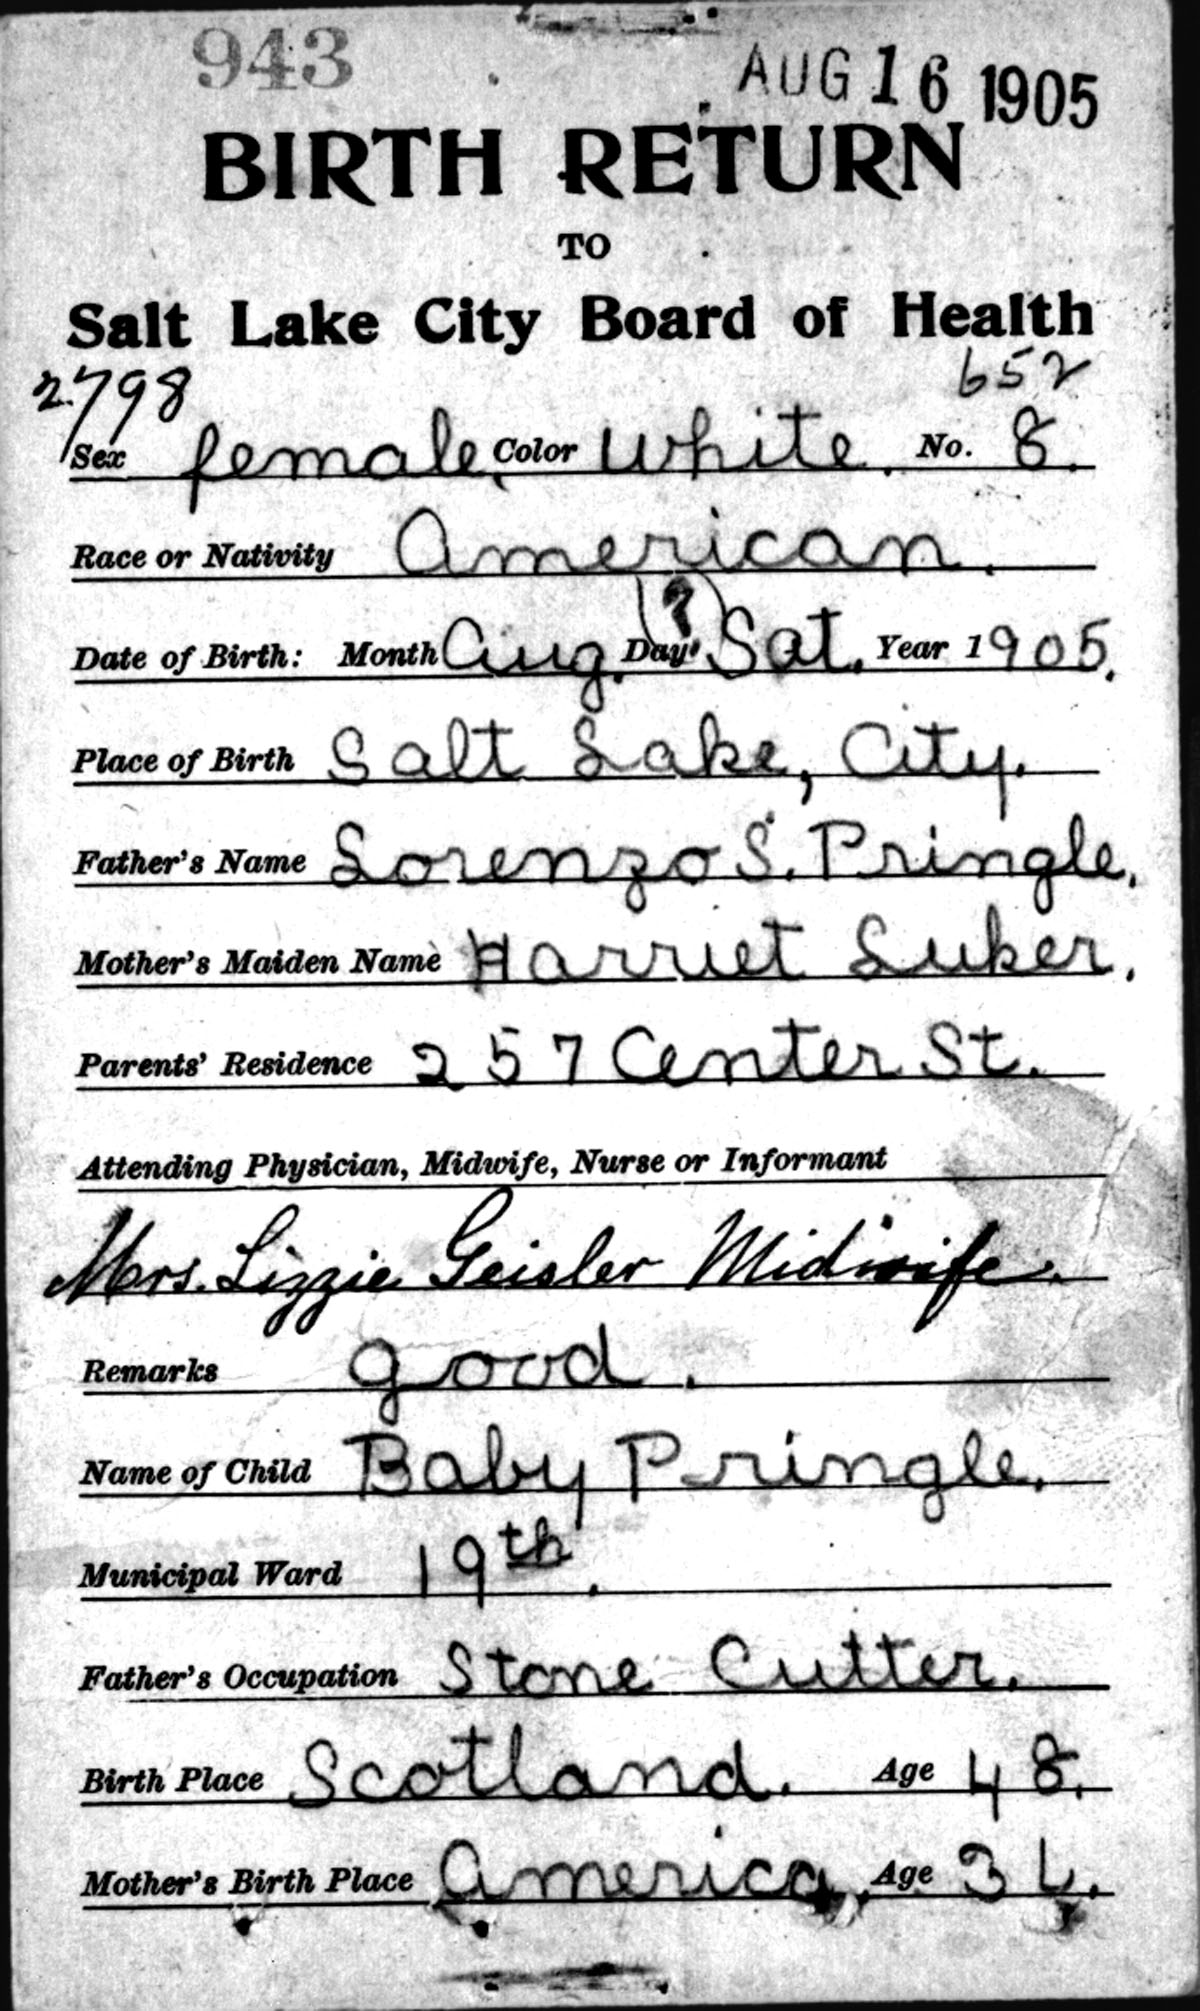 943
AUG 16 1905
BIRTH RETURN
TO
Salt Lake City Board of Health
2798 652
Sex female, Color White. No. 8.
Race or Nativity American.
?
Date of Birth: Month Aug. Day Sat. Year 1905.
Place of Birth Salt Lake, City.
Father's Name Lorenzo S. Pringle.
Mother's Maiden Name Harriet Luker.
Parents' Residence 257 Center St.
Attending Physician, Midwife, Nurse or Informant
Mrs. Lizzie Geisler Midwife.
Remarks good.
Name of Child Baby Pringle.
Municipal Ward 19th.
Father's Occupation Stone Cutter.
Birth Place Scotland. Age 48.
Mother's Birth Place America, Age